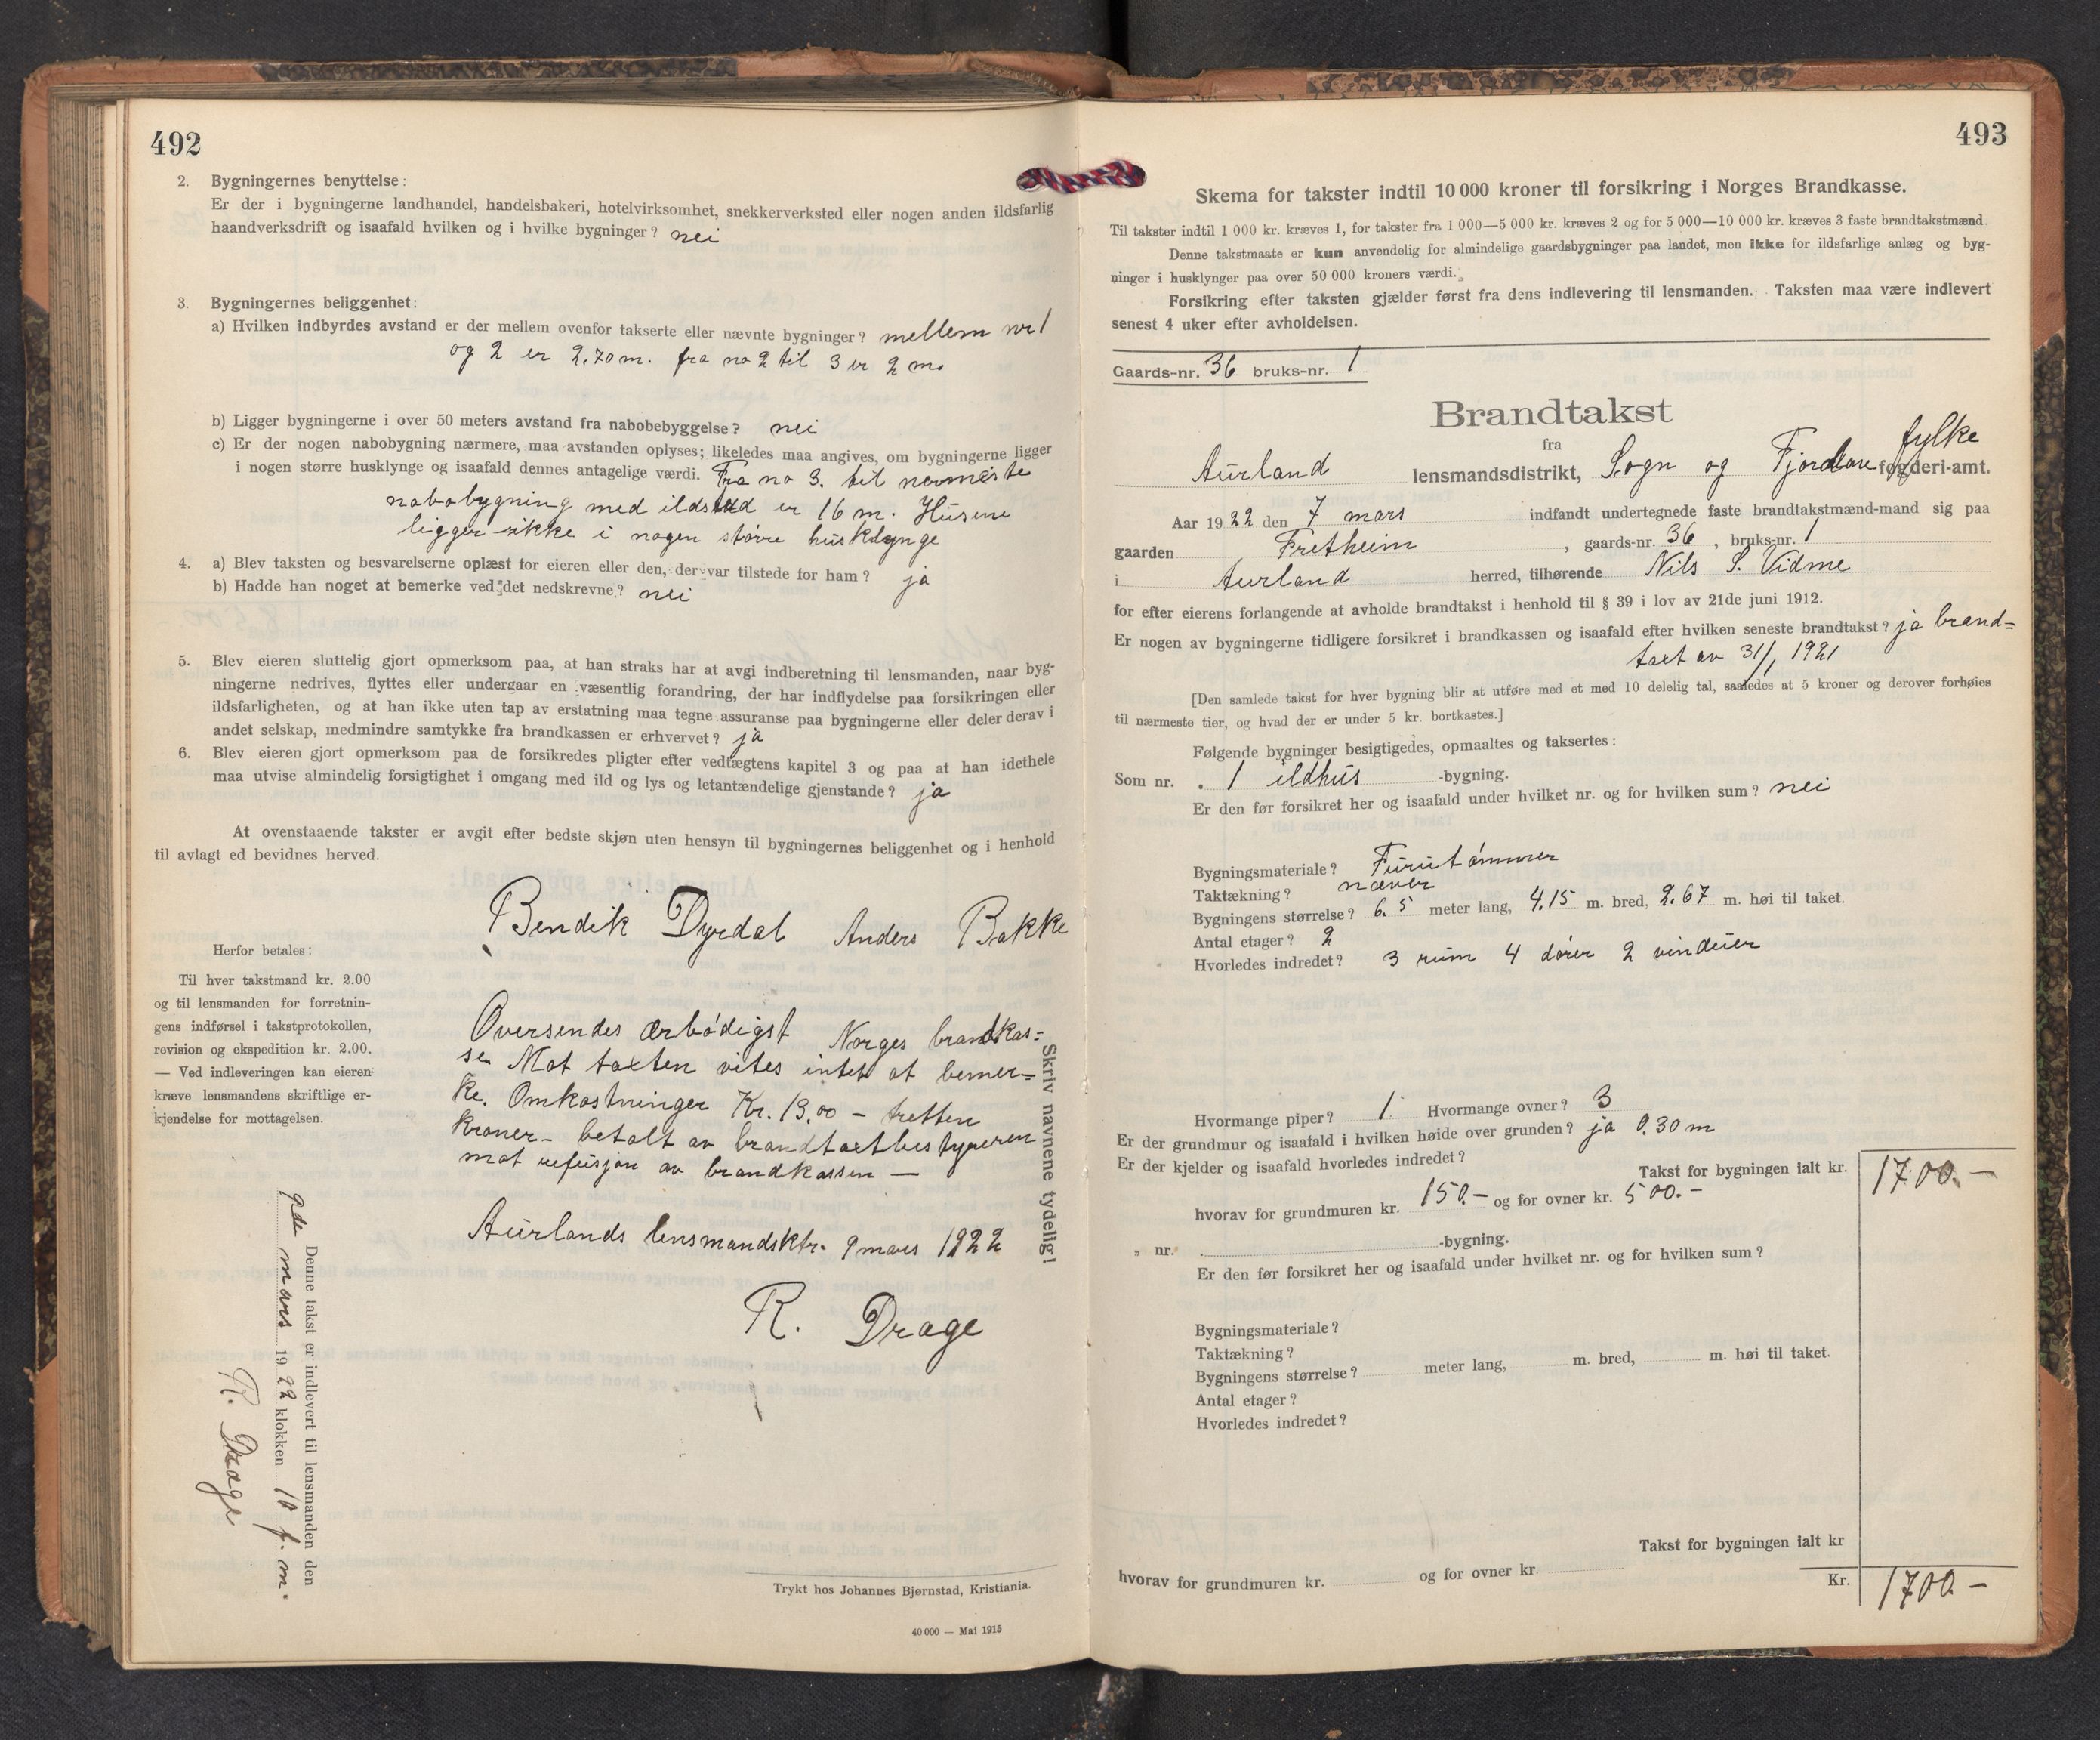 492
2. Bygningernes benyttelse:
Er der i bygningerne landhandel, handelsbakeri, hotelvirksomhet, snekkerverksted eller nogen anden ildsfarlig
haandverksdrift og isaafald hvilken og i hvilke bygninger? nei
3. Bygningernes beliggenhet:
a) Hvilken indbyrdes avstand er der mellem ovenfor takserte eller nævnte bygninger? mellem nr 1
og 2 er 2.70 m. fra no 2 til 3 er 2 m.
b) Ligger bygningerne i over 50 meters avstand fra nabobebyggelse? nei
c) Er der nogen nabobygning nærmere, maa avstanden oplyses; likeledes maa angives, om bygningerne ligger
i nogen større husklynge og isaafald dennes antagelige værdi. Fra no 3. til nermeste
nabobygning med ildsted er 16 m. Husene
ligger ikke i nogen større husklynge
4. a) Blev taksten og besvarelserne oplæst for eieren eller den, der var tilstede for ham? ja
b) Hadde han noget at bemerke ved det nedskrevne? nei
5. Blev eieren sluttelig gjort opmerksom paa, at han straks har at avgi indberetning til lensmanden, naar byg-
ningerne nedrives, flyttes eller undergaar en væsentlig forandring, der har indflydelse paa forsikringen eller
ildsfarligheten, og at han ikke uten tap av erstatning maa tegne assuranse paa bygningerne eller deler derav i
andet selskap, medmindre samtykke fra brandkassen er erhvervet? ja
6. Blev eieren gjort opmerksom paa de forsikredes pligter efter vedtægtens kapitel 3 og paa at han idethele
maa utvise almindelig forsigtighet i omgang med ild og lys og letantændelige gjenstande? ja
At ovenstaaende takster er avgit efter bedste skjøn uten hensyn til bygningernes beliggenhet og i henhold
til avlagt ed bevidnes herved.
Bendik Dyrdal Anders Bakke
Herfor betales:
Til hver takstmand kr. 2.00
og til lensmanden for forretnin-
gens indførsel i takstprotokollen,
revision og ekspedition kr. 2.00.
— Ved indleveringen kan eieren
kræve lensmandens skriftlige er-
kjendelse for mottagelsen.
Oversendes ærbødigst Norges brandkas=
se. Mot taxten vites intet at bemer=
ke. Omkostninger Kr. 13,00 – tretten
kroner – betalt av brandtaxtbestyreren
mot refusjon av brandkassen —
Aurlands lensmandsktr. 9 mars 1922
R. Drage
Skriv navnene tydelig!
Denne takst er indlevert til lensmanden den
9de mars 1922 klokken 10 f.m.
R. Drage
Trykt hos Johannes Bjørnstad, Kristiania.
40 000 — Mai 1915
493
Skema for takster indtil 10 000 kroner til forsikring i Norges Brandkasse.
Til takster indtil 1 000 kr. kræves 1, for takster fra 1 000—5 000 kr. kræves 2 og for 5 000—10 000 kr. kræves 3 faste brandtakstmænd.
Denne takstmaate er kun anvendelig for almindelige gaardsbygninger paa landet, men ikke for ildsfarlige anlæg og byg-
ninger i husklynger paa over 50 000 kroners værdi.
Forsikring efter taksten gjælder først fra dens indlevering til lensmanden. Taksten maa være indlevert
senest 4 uker efter avholdelsen.
Gaards-nr. 36 bruks-nr. 1
Brandtakst
fra
Aurland lensmandsdistrikt, Sogn og Fjordane fylke føgderi-amt.
Aar 1922 den 7 mars indfandt undertegnede faste brandtakstmænd-mand sig paa
gaarden Fretheim, gaards-nr. 36, bruks-nr. 1
i Aurland herred, tilhørende Nils S. Vidme
for efter eierens forlangende at avholde brandtakst i henhold til § 39 i lov av 21de juni 1912.
Er nogen av bygningerne tidligere forsikret i brandkassen og isaafald efter hvilken seneste brandtakst? ja brand=
taxt av 31/1 1921
[Den samlede takst for hver bygning blir at utføre med et med 10 delelig tal, saaledes at 5 kroner og derover forhøies
til nærmeste tier, og hvad der er under 5 kr. bortkastes.]
Følgende bygninger besigtigedes, opmaaltes og taksertes:
Som nr. 1 ildhus -bygning.
Er den før forsikret her og isaafald under hvilket nr. og for hvilken sum? nei
Bygningsmateriale? Furutømmer
Taktækning? næver
Bygningens størrelse? 6.5 meter lang, 4.15 m. bred, 2.67 m. høi til taket.
Antal etager? 2
Hvorledes indredet? 3 rum 4 dører 2 vinduer
Hvormange piper? 1. Hvormange ovner? 3
Er der grundmur og isaafald i hvilken høide over grunden? ja 0.30 m
Er der kjelder og isaafald hvorledes indredet?
Takst for bygningen ialt kr. 1700.–
hvorav for grundmuren kr. 150.– og for ovner kr. 500.–
„ nr. -bygning.
Er den før forsikret her og isaafald under hvilket nr. og for hvilken sum?
Bygningsmateriale?
Taktækning?
Bygningens størrelse? meter lang, m. bred, m. høi til taket.
Antal etager?
Hvorledes indredet?
Takst for bygningen ialt kr
hvorav for grundmuren kr. og for ovner kr.
Kr. 1700.–